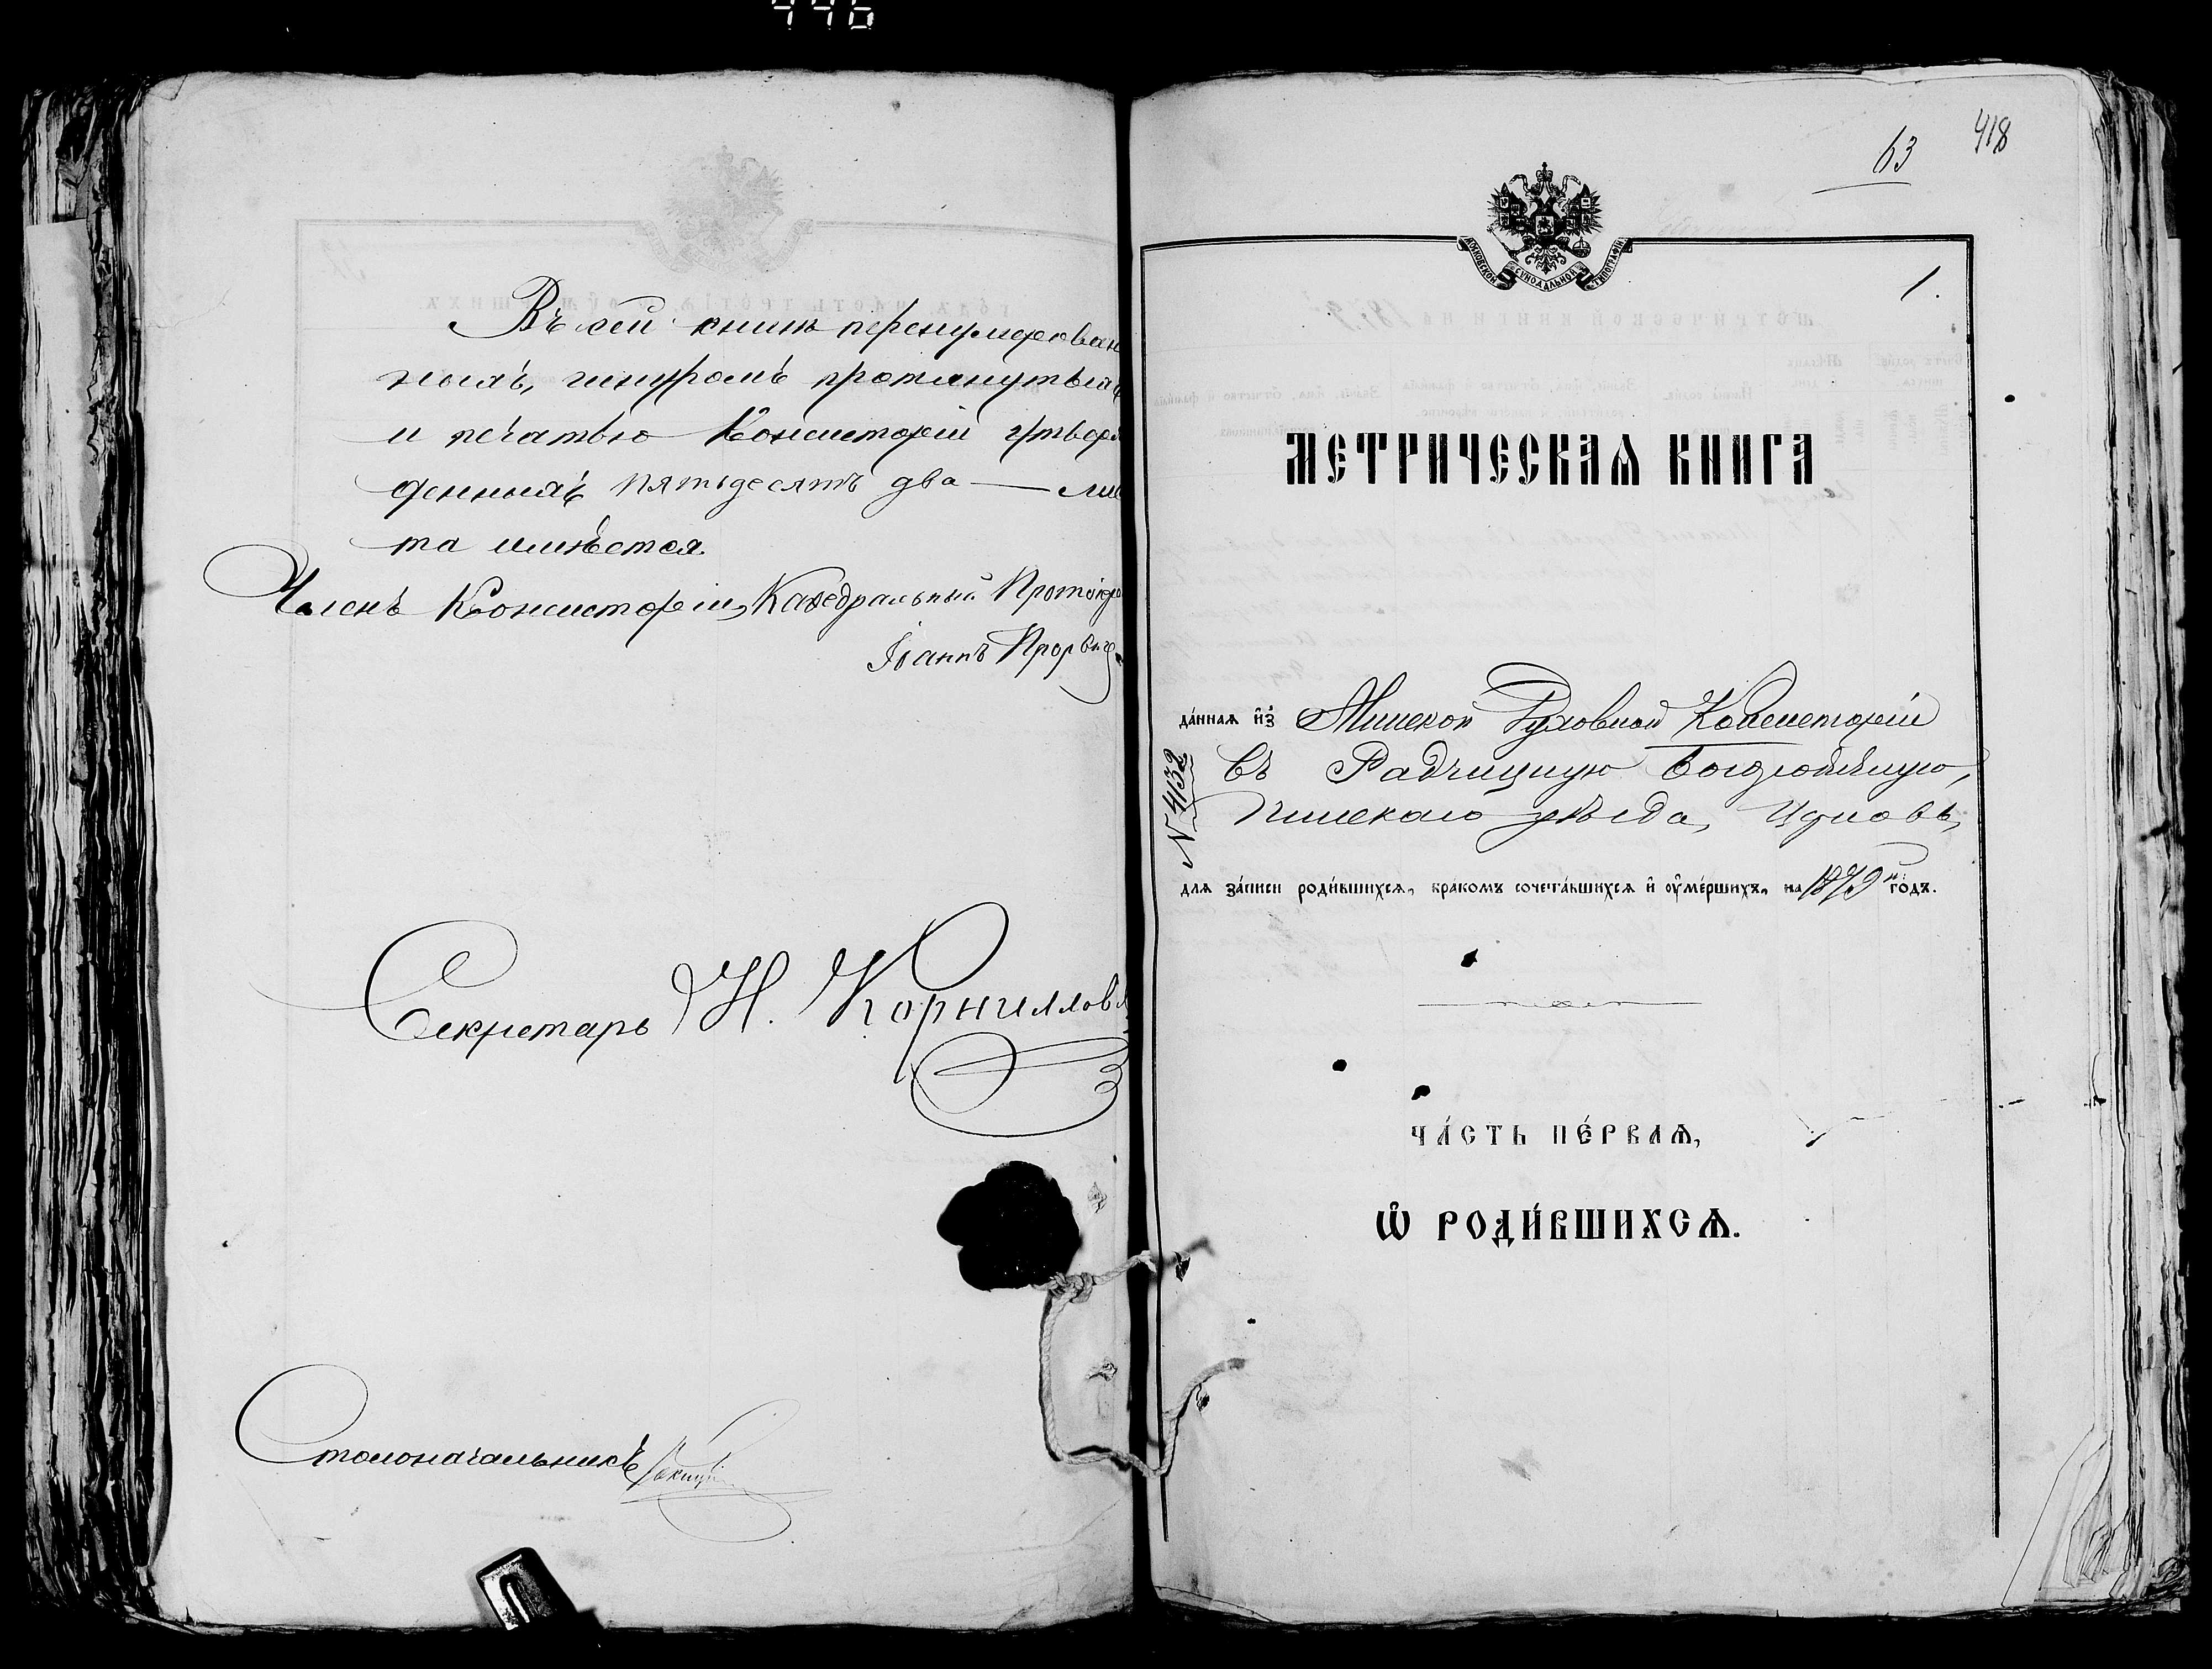 446
Въ сей книгѣ перенумерован
ныхъ, шнуромъ протянутыхъ
и печатью Консисторіи утверж
денныхъ пятьдесятъ два — лис
та имѣется.
Членъ Консисторіи, Каѳедральный Протоіере
Іоаннъ Прорвич
Секретарь Н. Корниллов
Столоначальникъ
418
63
МОСКОВСКОЙ СѴНОДАЛЬНОЙ ТИПОГРАФІИ
1.
МЕТРИЧЕСКАѦ КНИГА
да́ннаѧ и҆з̾ Минской Духовной Консисторіи
№ 4132
въ Радчицкую Богородичную,
Пинскаго уѣзда, Церковь,
длѧ за́писи роди́вшихсѧ, бра́комъ сочета́вшихсѧ и҆ ᲂу҆ме́ршихъ, на 1879 й го́дъ.
ЧА́СТЬ ПЕ́РВАѦ,
Ѡ҆ РОДИ́ВШИХСѦ.